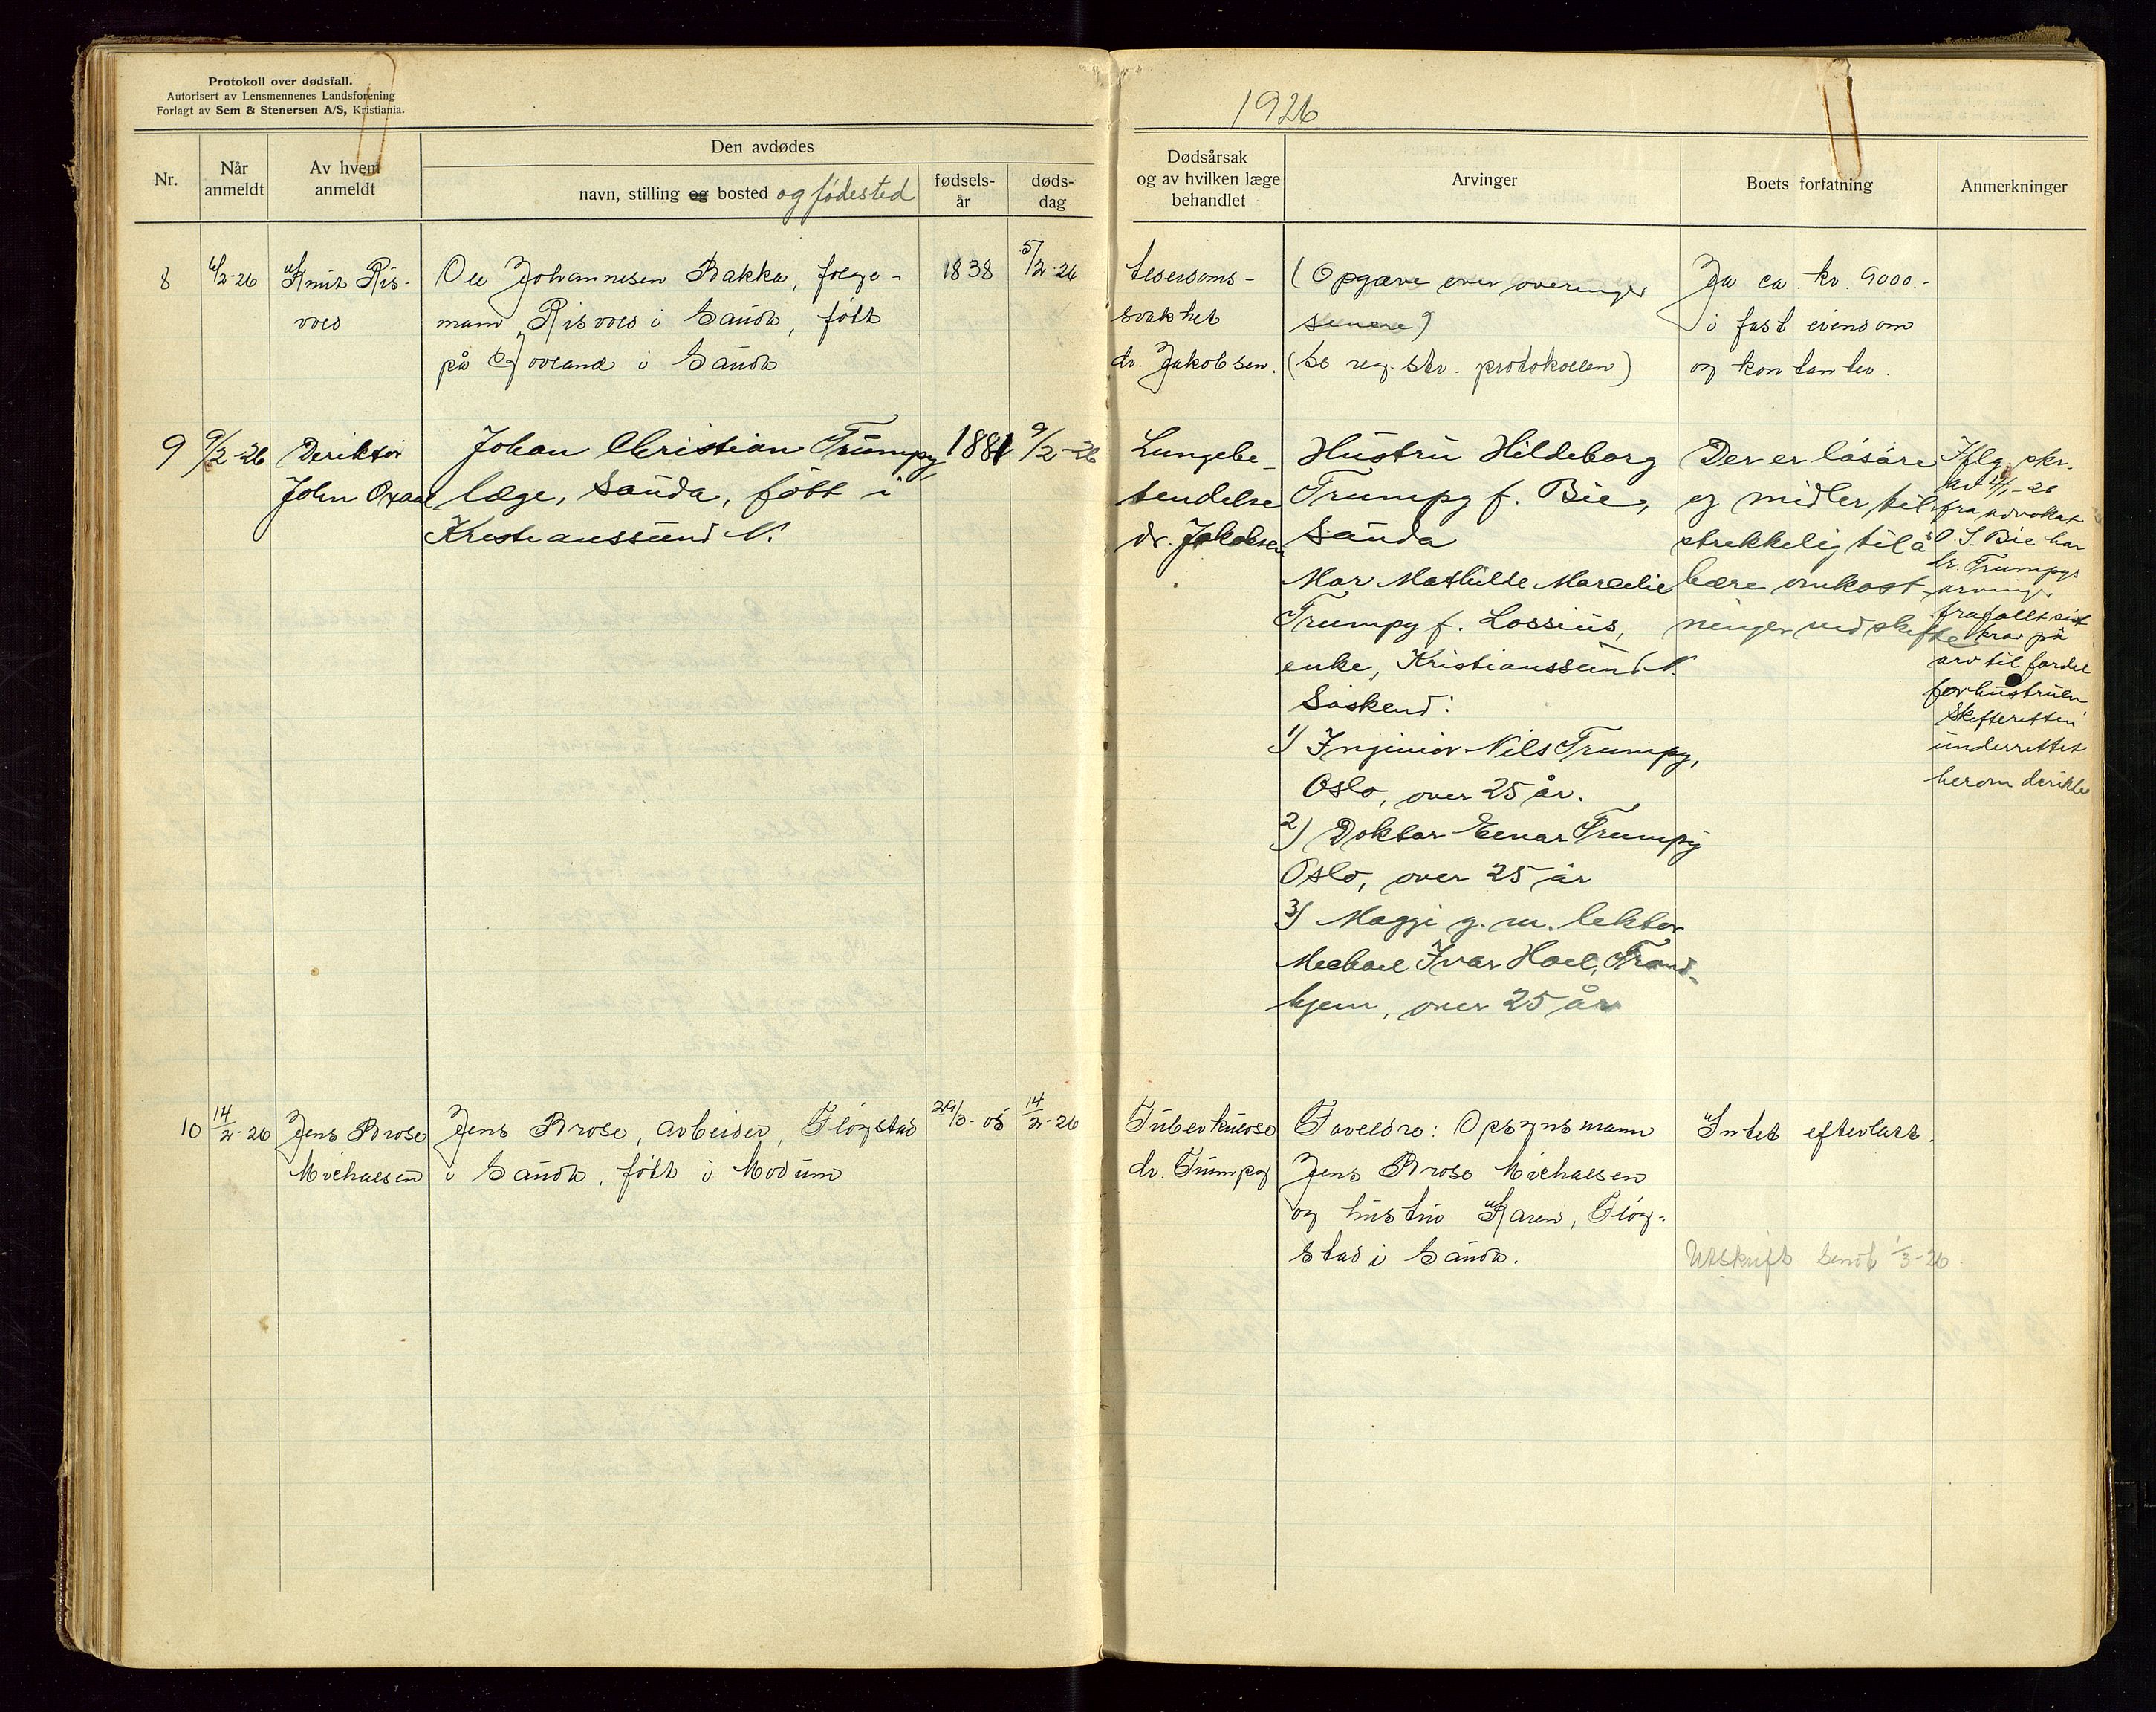 Protokoll over dødsfall.
Autorisert av Lensmennenes Landsforening
Forlagt av Sem & Stenersen A/S, Kristiania.
Nr.
Når
anmeldt
Av hvem
anmeldt
Den avdødes
navn, stilling og bosted og fødested
fødsels-
år
døds-
dag
8
6/2-26
Knut Ris-
vold
Ole Johannesen Bakka, følge-
mann, Risvold i Sauda, født
på Hovland i Sauda
1838
5/2-26
9
9/2-26
Deriktør
John Oxaal
Johan Christian Trumpy,
læge, Sauda, født i
Kristianssund N.
1881
9/2-26
10
14/2-26
Jens Brose
Michalsen
Jens Brose, arbeider, Fløgstad
i Sauda, født i Modum
29/3-05
14/2-26
1926
Dødsårsak
og av hvilken læge
behandlet
Arvinger
Boets forfatning
Anmerkninger
Alderdoms-
svakhet
dr. Jakobsen.
(Opgave over arvinger
senere)
(Se reg. str. protokollen)
Ja ca. kr. 9000.-
i fast eiendom
og kontanter.
Lungebe-
tendelse
dr. Jakobsen
Hustru Hildeborg
Trumpy f. Bie,
Sauda
Mor Mathilde Marcelie
Trumpy f. Lossius,
enke, Kristianssund N.
Søskend:
1) Ingeniør Nils Trumpy,
Oslo, over 25 år.
2) Doktor Einar Trumpy
Oslo, over 25 år
3) Maggi g. m. lektor
Michael Ivar Hoel, Trond-
hjem, over 25 år
Der er løsøre
og midler til-
strekkelig til å
bære omkost-
ninger ved skifte
Iflg. skr.
av -26
fra advokat
O. S. Bie har
dr. Trumpys
arvinger
frafallt sit
krav på
arv til fordel
for hustruen
Skifteretten
underrettet
herom derikte
Tuberkulose
dr. Trumpy
Foreldre: Opsynsmann
Jens Brose Michalsen
og hustru Karen, Fløg-
stad i Sauda.
Intet efterlatt.
Utskrift sendt 1/3-26.